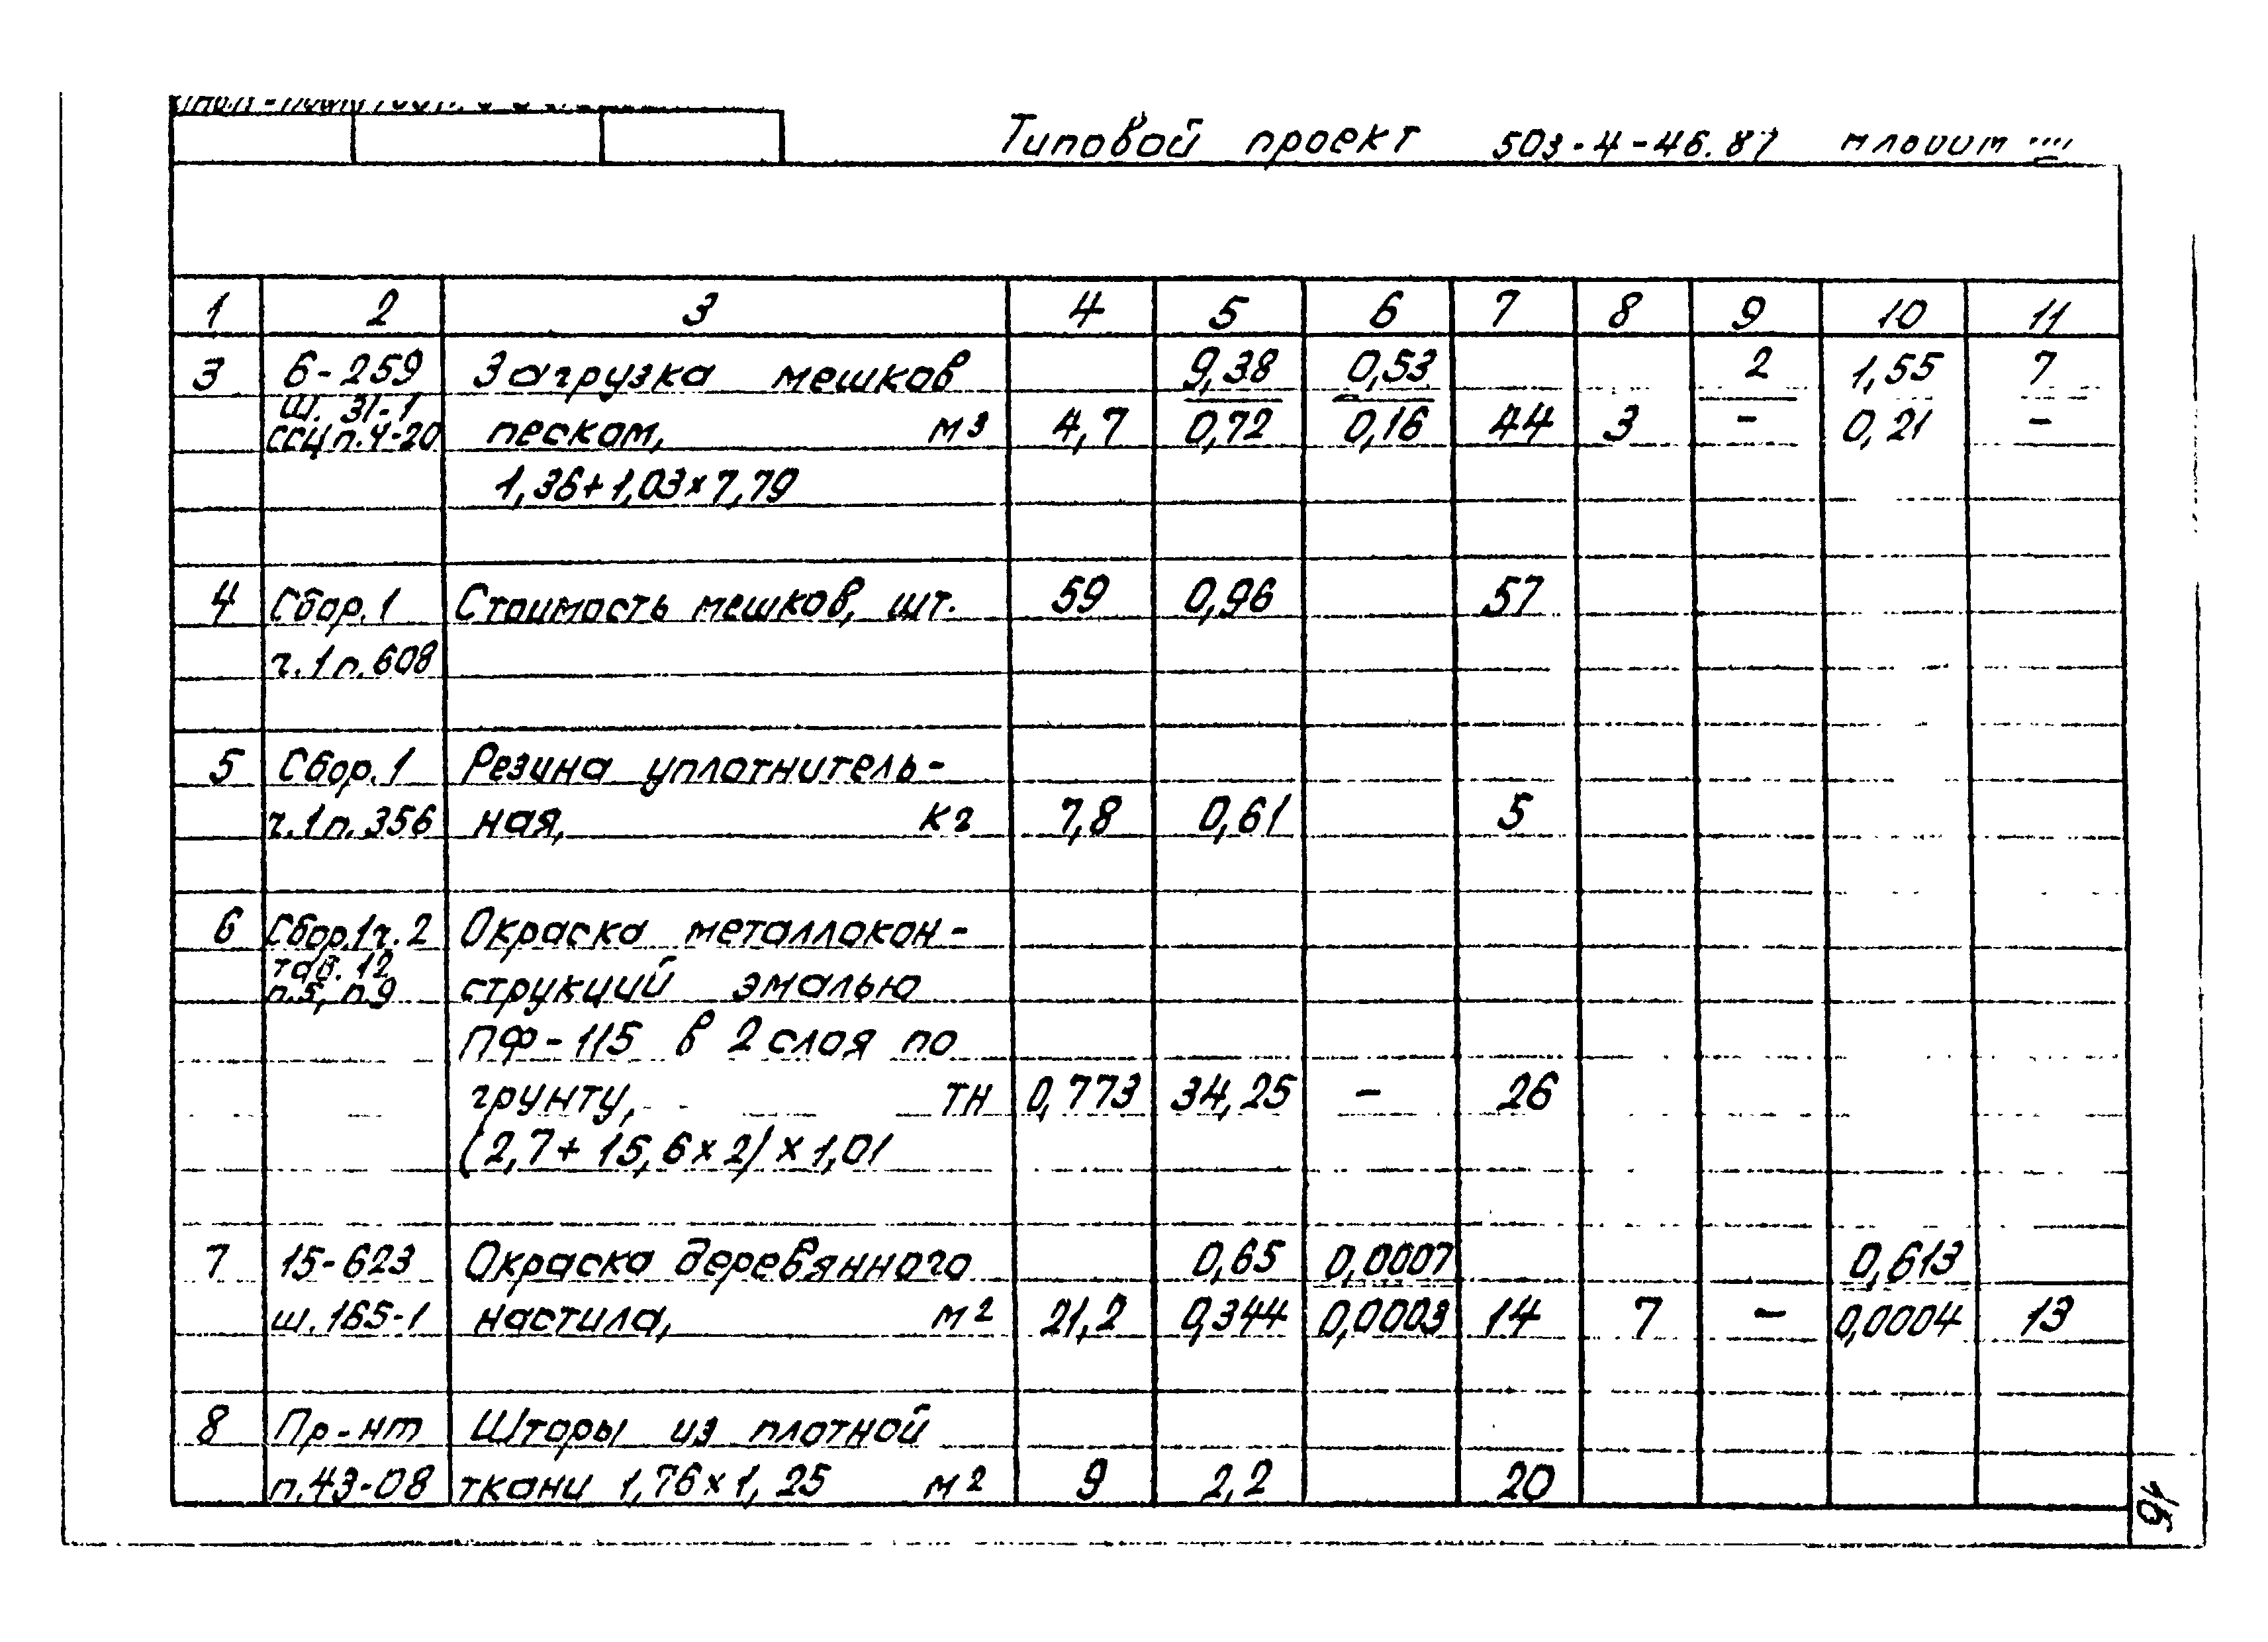 Типовой проект 503-4-46.87
1 2 3 4 5 6 7 8 9 10 11
3 6-259 Загрузка мешков 9,38 0,53 2 1,55 7
ш. 31-1
ССЦ п.4-20 песком, м3 4,7 0,72 0,16 44 3 - 0,21 -
1,36+1,03×7,79
4 Сбор.1 Стоимость мешков, шт. 59 0,96 57
ч.1 п.608
5 Сбор.1 Резина уплотнитель-
ч.1 п.356 ная, кг 7,8 0,61 5
6 Сбор.1 ч.2 Окраска металлокон-
таб. 12
п.5, п.9 струкций эмалью
ПФ-115 в 2 слоя по
грунту, тн 0,773 34,25 - 26
(2,7+15,6×2)×1,01
7 15-623 Окраска деревянного 0,65 0,0007 0,613
ш.165-1 настила, м2 21,2 0,344 0,0003 14 7 - 0,0004 13
8 Пр-нт Шторы из плотной
п.43-08 ткани 1,76×1,25 м2 9 2,2 20